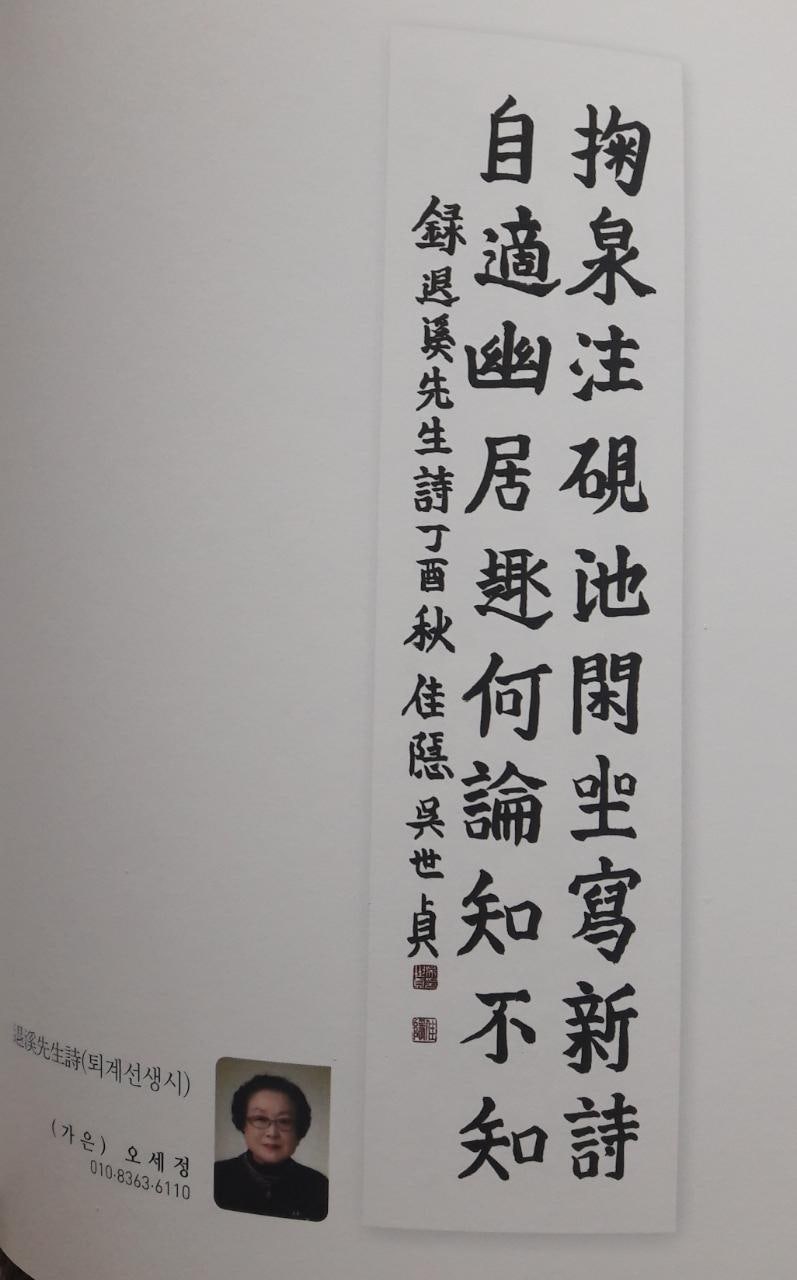 掬泉注硯池閑坐寫新詩
自適幽居趣何論知不知
録退溪先生詩丁酉秋佳隱吳世貞
退溪先生詩(퇴계선생시)
(가은) 오세정
010·8363·6110